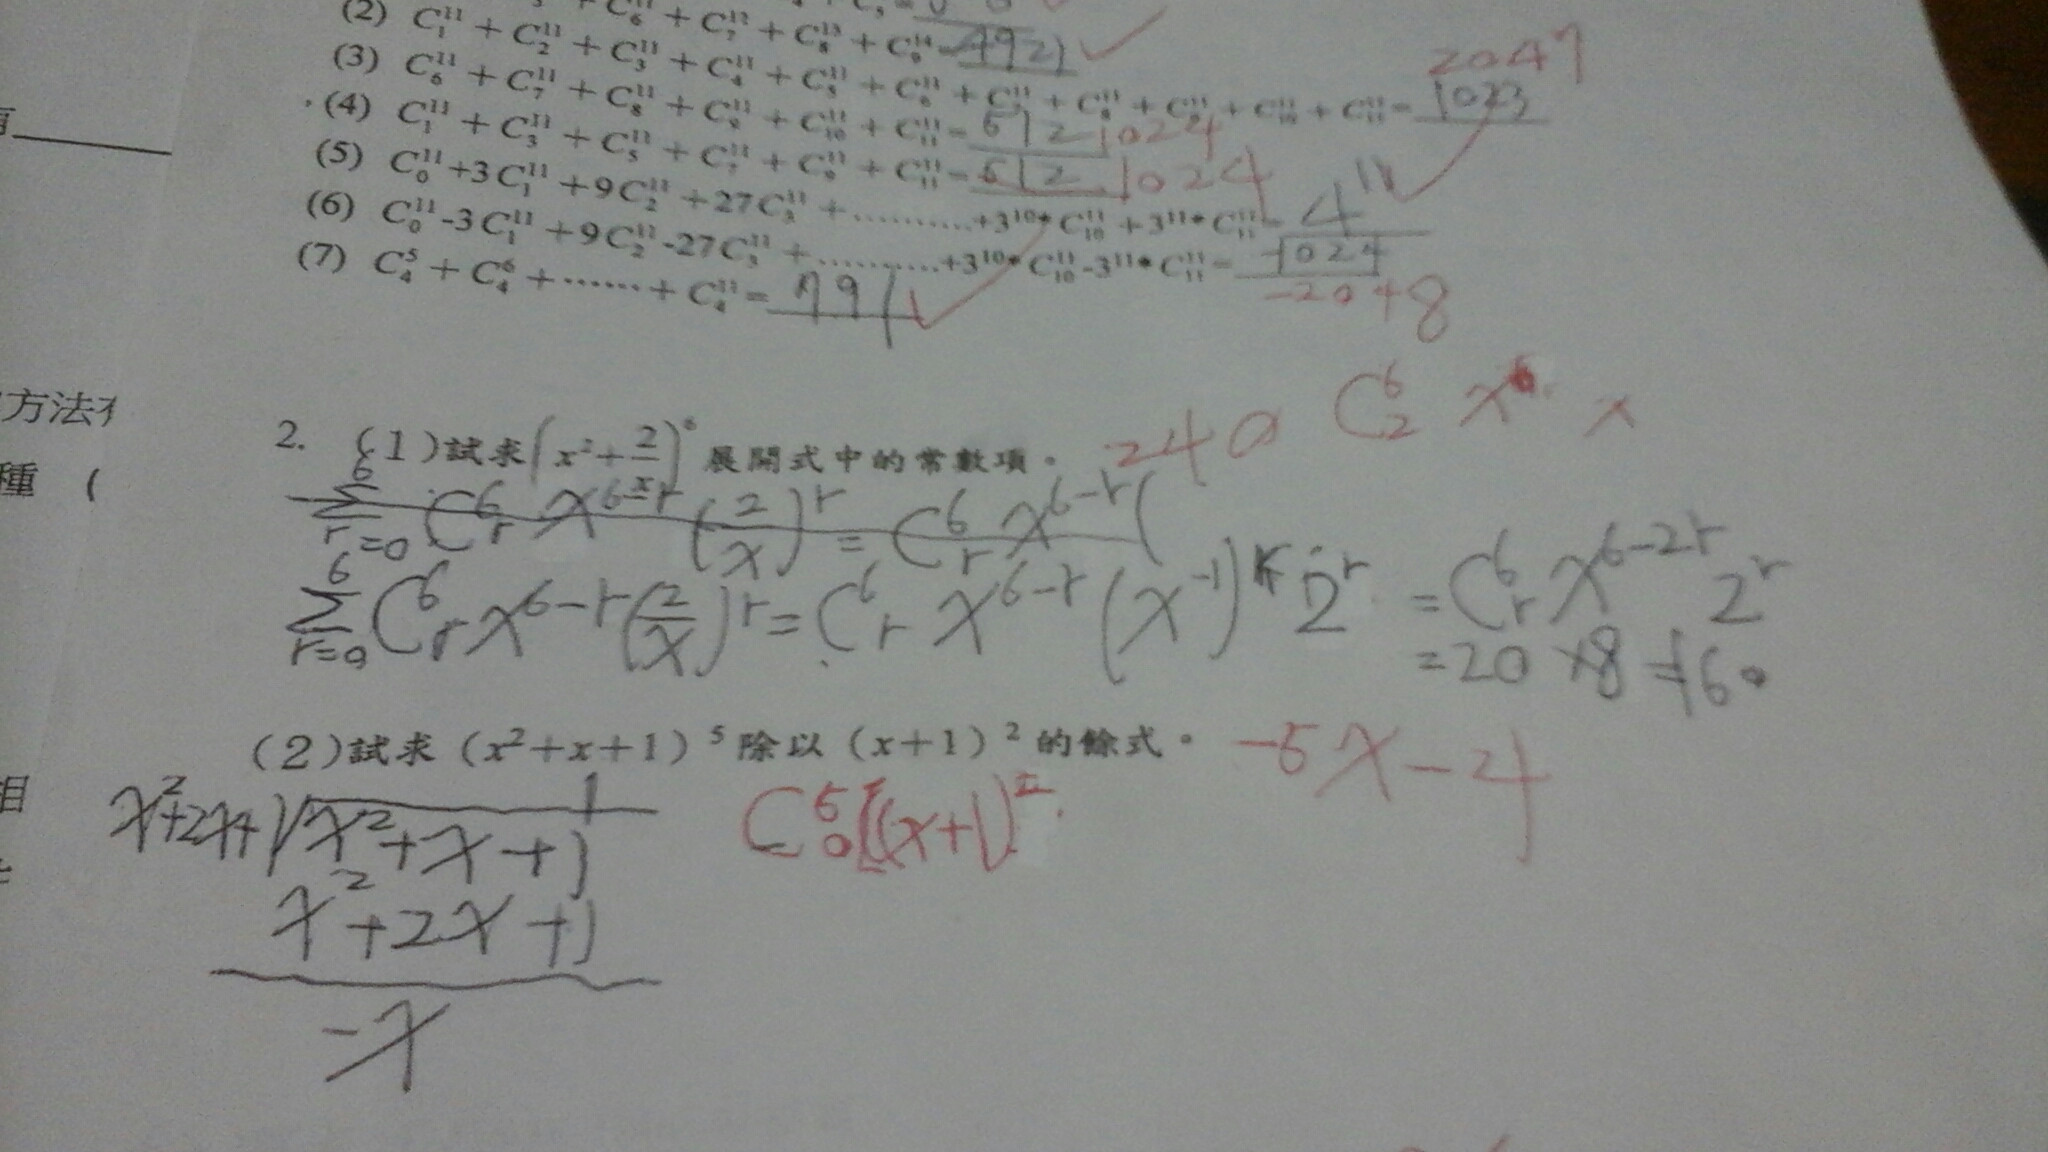 (2) C₁¹¹ + C₂¹¹ + C₃¹¹ + C₄¹¹ + C₅¹¹ + C₆¹¹ + C₇¹¹ + C₈¹¹ + C₉¹¹ + C₁₀¹¹ + C₁₁¹¹ = 1023 2047
(3) C₆¹¹ + C₇¹¹ + C₈¹¹ + C₉¹¹ + C₁₀¹¹ + C₁₁¹¹ = 512 1024
(4) C₁¹¹ + C₃¹¹ + C₅¹¹ + C₇¹¹ + C₉¹¹ + C₁₁¹¹ = 512 1024
(5) C₀¹¹ +3C₁¹¹ +9C₂¹¹ +27C₃¹¹ + ........... +3¹⁰* C₁₀¹¹ +3¹¹* C₁₁¹¹ = 4¹¹
(6) C₀¹¹ -3C₁¹¹ +9C₂¹¹ -27C₃¹¹ + ........... +3¹⁰* C₁₀¹¹ -3¹¹* C₁₁¹¹ = -1024 -2048
(7) C₄⁵ + C₄⁶ + ...... + C₄¹¹ = 791
方法
種 (
相
2. (1)試求(x²+2/x)⁶ 展開式中的常數項。 240 C₂⁶ x⁶ x
Σ⁶ᵣ₌₀ Cᵣ⁶ x⁶⁻ʳ (2/x)ʳ = Cᵣ⁶ x⁶⁻ʳ (
Σ⁶ᵣ₌₀ Cᵣ⁶ x⁶⁻ʳ (2/x)ʳ = Cᵣ⁶ x⁶⁻ʳ (x⁻¹)ʳ 2ʳ = Cᵣ⁶ x⁶⁻²ʳ 2ʳ
= 20 × 8 = 160
(2)試求 (x²+x+1)⁵ 除以 (x+1)² 的餘式。 -5x-4
1
x²+2x+1 x²+x+1 C₀⁵[(x+1)²
x²+2x+1
-x